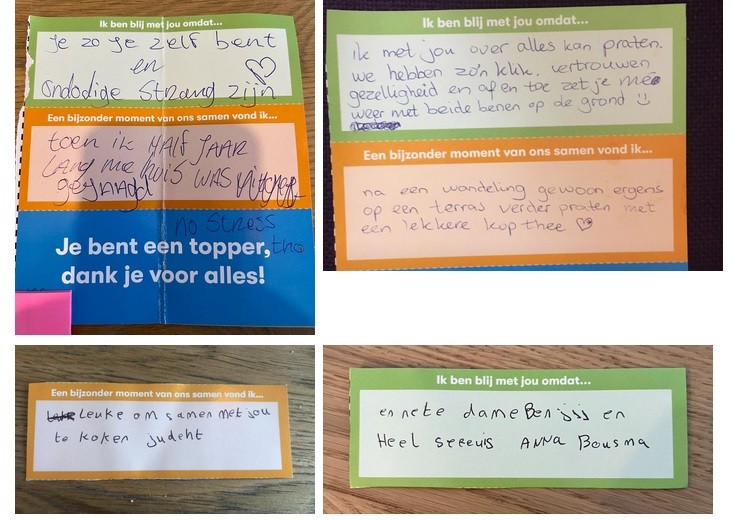 Ik ben blij met jou omdat...
je zo je zelf bent
en
ondodige strang zijn
Een bijzonder moment van ons samen vond ik...
toen ik HALF JAAR
LANG me huis WAS
no stress
Je bent een topper, tho
dank je voor alles!
Ik ben blij met jou omdat...
ik met jou over alles kan praten.
we hebben zo'n klik, vertrouwen
gezelligheid en af en toe zet je me
weer met beide benen op de grond
Een bijzonder moment van ons samen vond ik...
na een wandeling gewoon ergens
op een terras verder praten met
een lekkere kop thee
Een bijzonder moment van ons samen vond ik...
Leuke om samen met jou
te koken judeht
Ik ben blij met jou omdat...
en nete dame Ben jij en
Heel sereuis ANNA Bousma